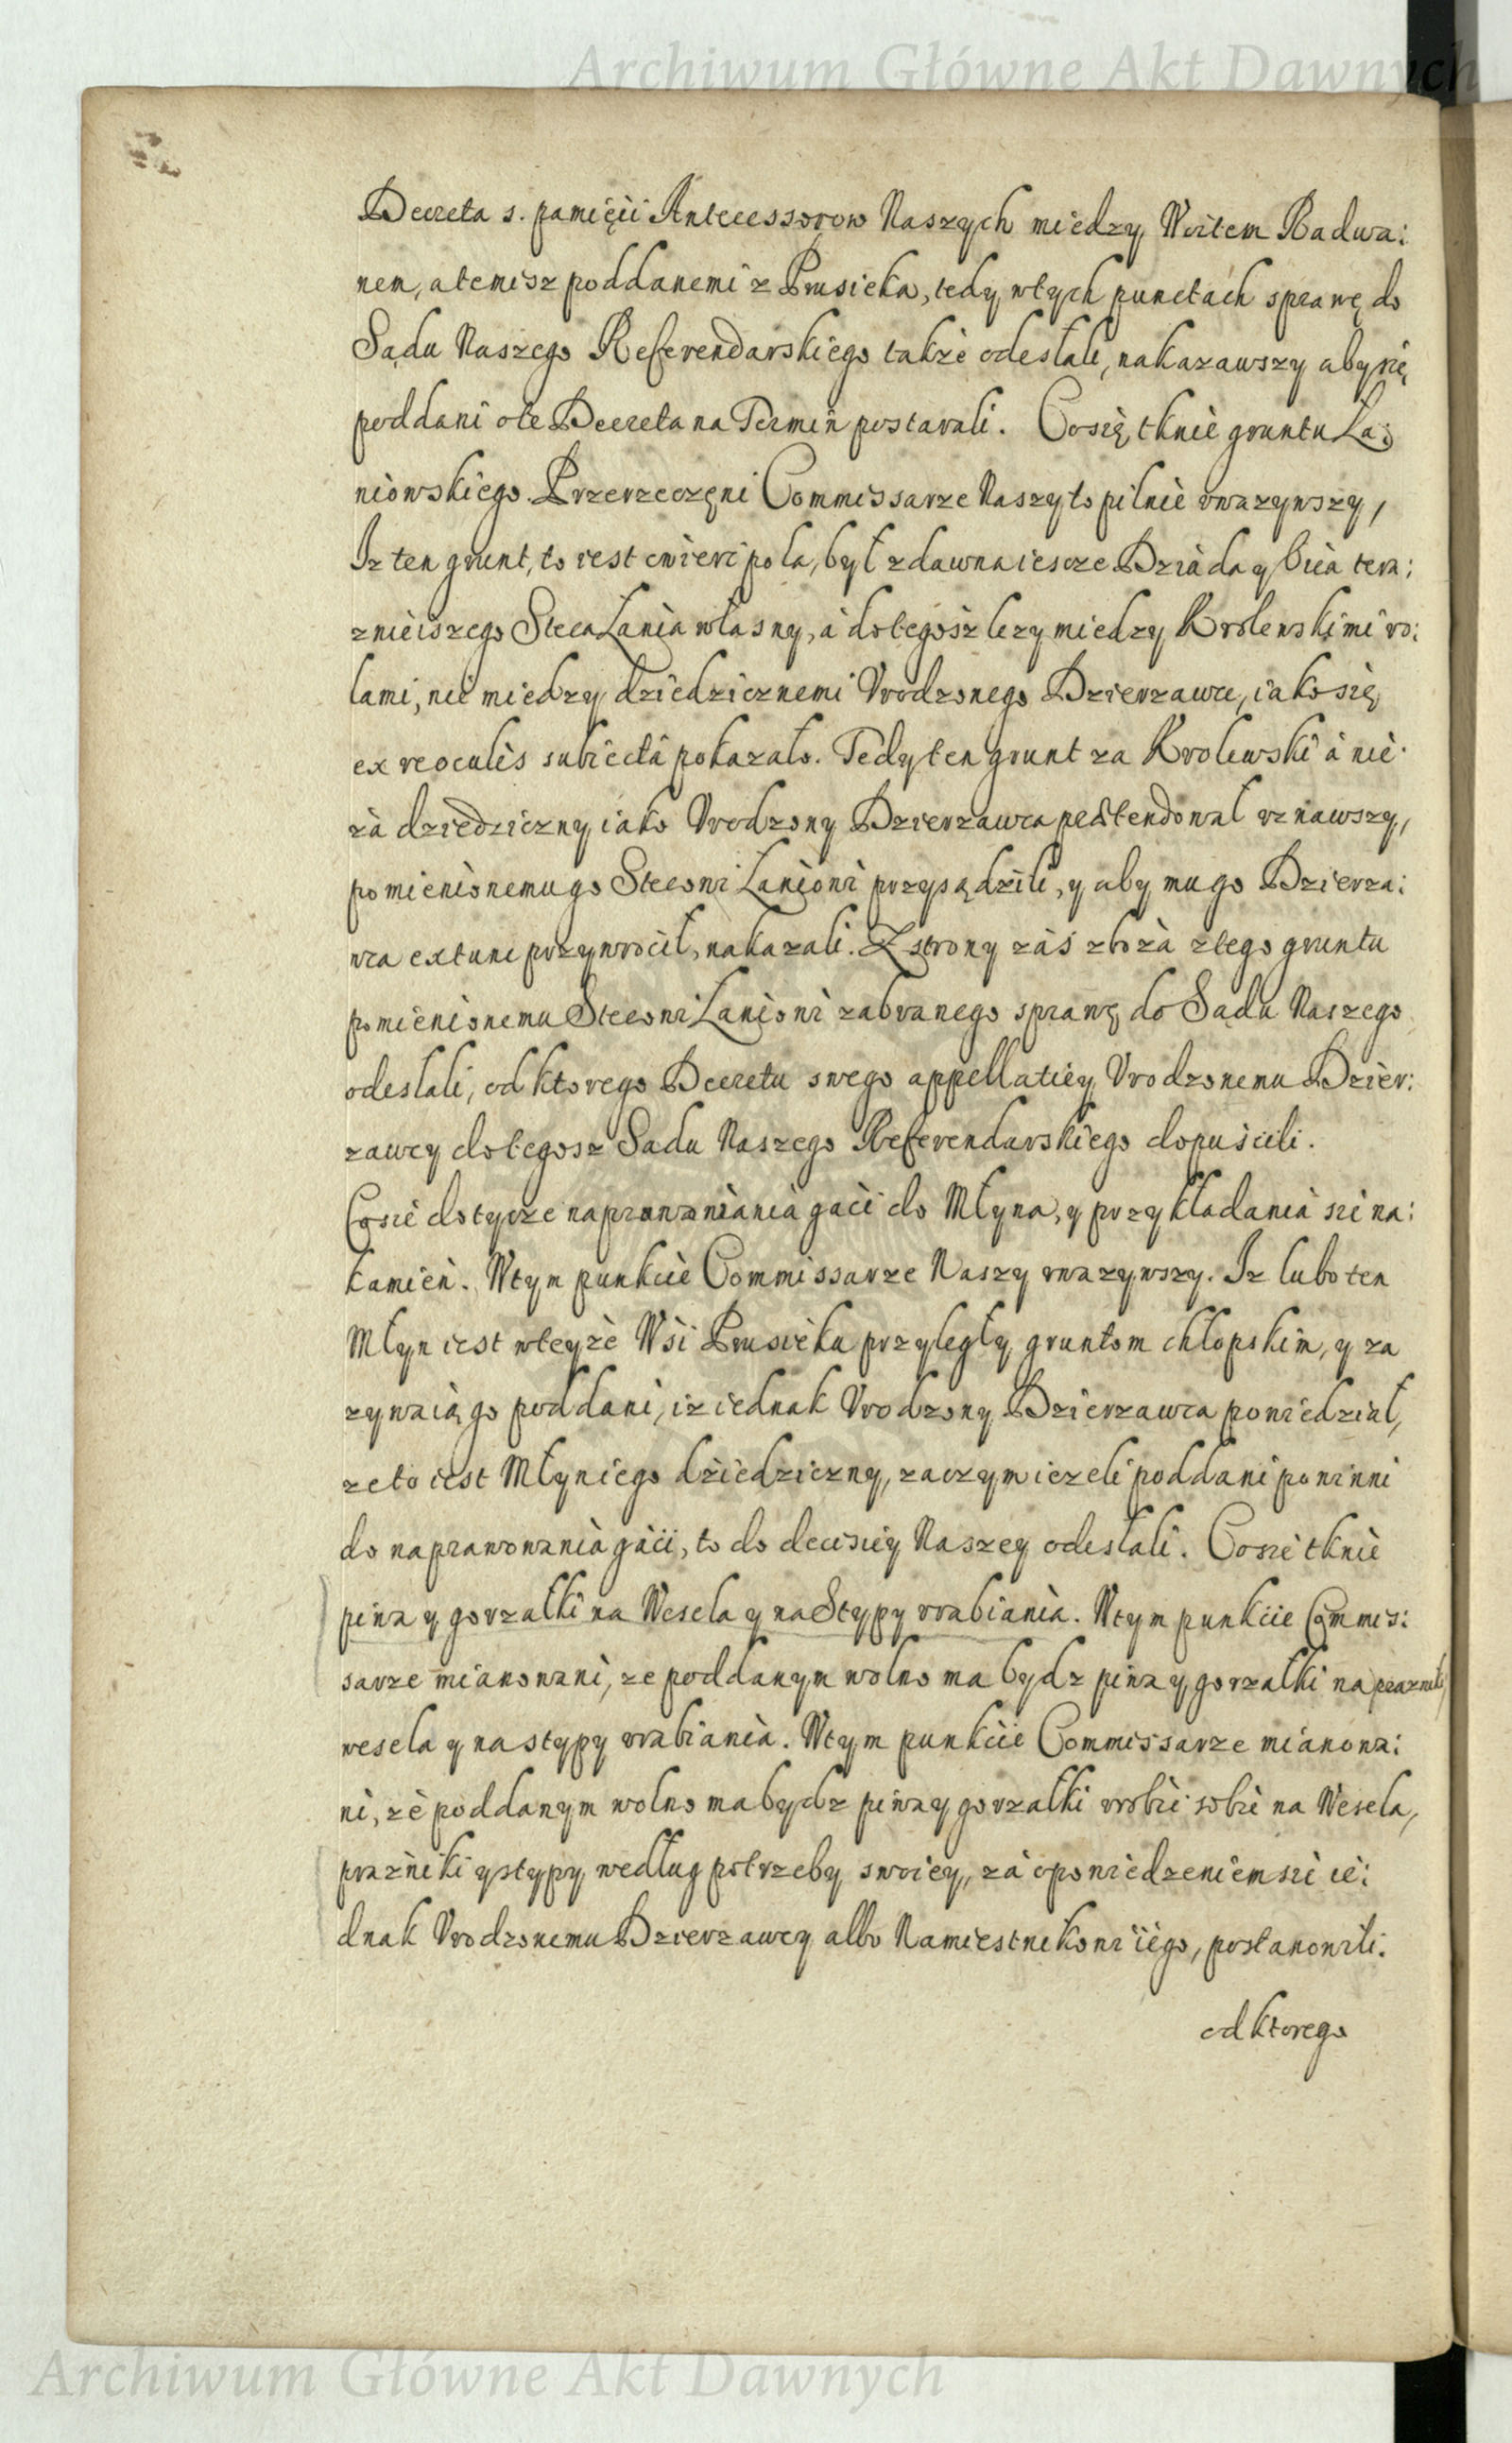 Archiwum Główne Akt Dawnych
Decreta s. pamięci Antecessorow Naszych miedzy Woitem Radwa:
nem, a temisz poddanemi z Prusieka, tedy w tych punctach sprawę do
Sądu Naszego Referendarskiego także odesłali, nakazawszy aby się
poddani o te Decreta na Termin postarali. Co się tknie gruntu La:
niowskiego Przerzeczęni Commissarze Naszy to pilnie vwazywszy,
Iz ten grunt, to iest cwierc pola, był zdawna iescze Dziada y Oica tera:
znieiszego Steca Lania własny, a do tegosz lezy miedzy Krolewskimi ro:
lami, nie miedzy dziedzicznemi Vrodzonego Dzierzawce, iako się
ex re oculis subiecta pokazało. Tedy ten grunt za Krolewski a nie
za dziedziczny iako Vrodzony Dzierzawca pretendował vznawszy,
pomienionemu go Stecowi Laniowi przysądzili, y aby mu go Dzierza:
wca ex tunc przywrocił, nakazali. Z strony zaś zboża z tego gruntu
pomienionemu Stecowi Laniowi zabranego sprawę do Sadu Naszego
odesłali, od ktorego Decretu swego appellatiey Vrodzonemu Dzier:
zawcy do tegosz Sadu Naszego Referendarskiego dopuscili.
Co sie dotycze naprawniania gaci do Młyna, y przykładania sie na:
kamien. W tym punkcie Commissarze Naszy vwazywszy. Iz lubo ten
Młyn iest w teyże Wsi Prusieku przyległy gruntom chłopskim, y za
zywaią go poddani, iz iednak Vrodzony Dzierzawca powiedział,
ze to iest Młyn iego dziedziczny, zaczym iezeli poddani powinni
do naprawowania gaci, to do decisiey Naszey odesłali. Co sie tknie
piwa y gorzałki na Wesela y na Stypy vrabiania. W tym punkcie Commis:
sarze mianowani, ze poddanym wolno ma bydz piwa y gorzałki na prazniki,
wesela y na stypy vrabiania. W tym punkcie Commissarze mianowa:
ni, ze poddanym wolno ma bydz piwa y gorzałki vrobic sobie na Wesela,
prazniki y stypy według potrzeby swoiey, za opowiedzeniem sie ie:
dnak Vrodzonemu Dzierzawcy albo Namiestnikowi iego, postanowili.
od ktorego
Archiwum Główne Akt Dawnych